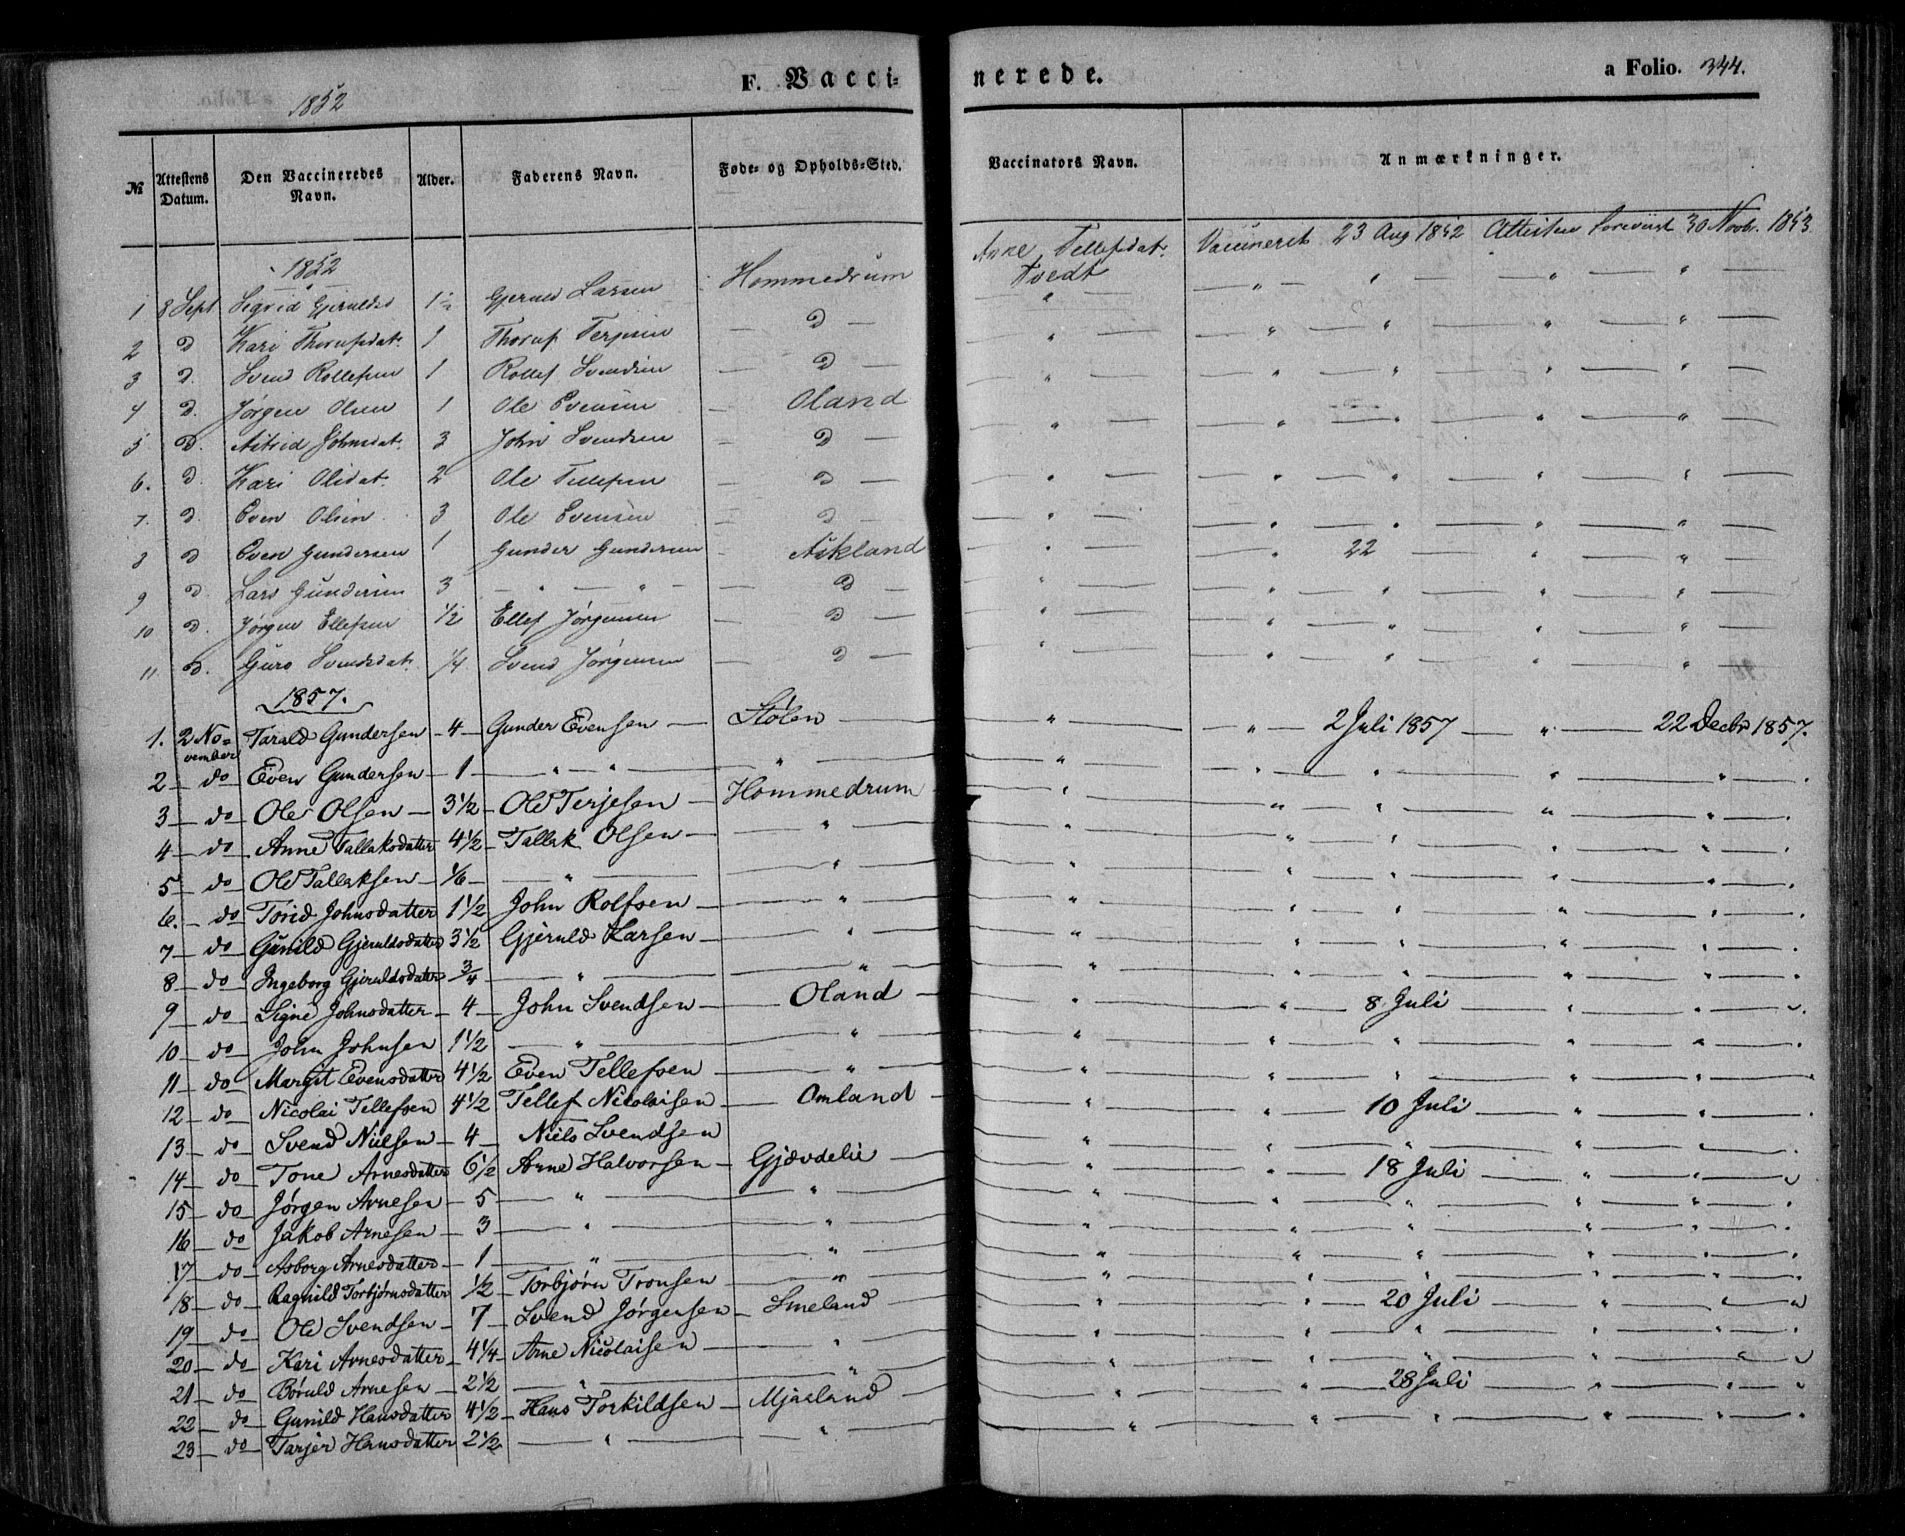 1852 F. Vacci- nerede. a Folio. 344.
№ Attestens Datum. Den Vaccineredes Navn. Alder. Faderens Navn. Føde- og Opholds-Sted. Vaccinators Navn. Anmærkninger.
1852
1 8 Sept Sigrid Gjeruldsd 1½ Gjeruld Larsen Hommedrum Anne Tellefsdat. Tvedt Vaccineret 23 Aug 1852 Attesten foreviist 30 Novbr. 1853
2 D Kari Thorufsdat. 1 Thoruf Terjesen — D — " " " " "
3 D. Svend Rollefsen 1 Rollef Svendsen — D — " " " " "
4 D. Jørgen Olsen 1 Ole Evensen — Oland " " " " "
5 D. Astrid Johnsdat. 3 John Svendsen — D — " " " " "
6. D. Kari Olsdat. 2 Ole Tellefsen — D — " " " " "
7. D. Even Olsen 3 Ole Evensen — D — " " " " "
8 D Even Gundersen 1 Gunder Gundersen — Askland " " 22 " "
9 D. Lars Gundersen 3 — " — " — — D — " " " " "
10 D. Jørgen Ellefsen 1/2 Ellef Jørgensen — D — " " " " "
11 D. Guro Svendsdat. 1/4 Svend Jørgensen — D — " " " " "
1857.
1. 2 November Tarald Gundersen — 4 — Gunder Evensen — Stølen — " " 2 Juli 1857 — " — 22 Decbr 1857.
2 — do Even Gundersen — 1 — " " " " " " " "
3 — do — Ole Olsen — 3½ — Ole Terjesen — Hommedrum " " " " "
4 — do — Anne Tallaksdatter 4½ — Tallak Olsen — " " " " " "
5 — do — Ole Tallaksen — 1/6 — " — " " " " " "
6. — do — Torid Johnsdatter 1½ John Rolfsen — " " " " " "
7 — do — Gunild Gjeruldsdatter 3½ Gjeruld Larsen — " " " " " "
8 — do — Ingeborg Gjeruldsdatter ¾ — " — " " " " " "
9 — do — Signe Johnsdatter — 4 — John Svendsen — Oland — " " 8 Juli — " "
10 — do — John Johnsen 1½ — " — " " " " " "
11 — do — Margit Evensdatter 4½ Even Tellefsen — " " " " " "
12 — do — Nicolai Tellefsen 4½ Tellef Nikolaisen — Omland — " " 10 Juli — " "
13 — do — Svend Nielsen — 4 — Niels Svendsen " " " " "
14 — do — Tone Arnesdatter 6½ Arne Halvorsen — Gjævdelie — " " 18 Juli — " "
15 — do — Jørgen Arnesen — 5 — " — " " " " " "
16 — do — Jakob Arnesen — 3 — " — " " " " " "
17 — do — Asborg Arnesdatter — 1 — " — " " " " " "
18 — do — Ragnild Torbjørnsdatter ½ — Torbjørn Tronsen — " " " 20 Juli — " "
19 — do — Ole Svendsen — 7 — Svend Jørgensen — Smeland — " " " " "
20 — do — Kari Arnesdatter — 4¼ — Arne Nicolaisen — " " " " " "
21 — do — Børuld Arnesen — 2½ — " — " " " 28 Juli — " "
22 — do — Gunild Hansdatter 4½ — Hans Torkildsen — Mjaaland — " " " " "
23 — do — Tarjer Hansdatter 2½ — " — "